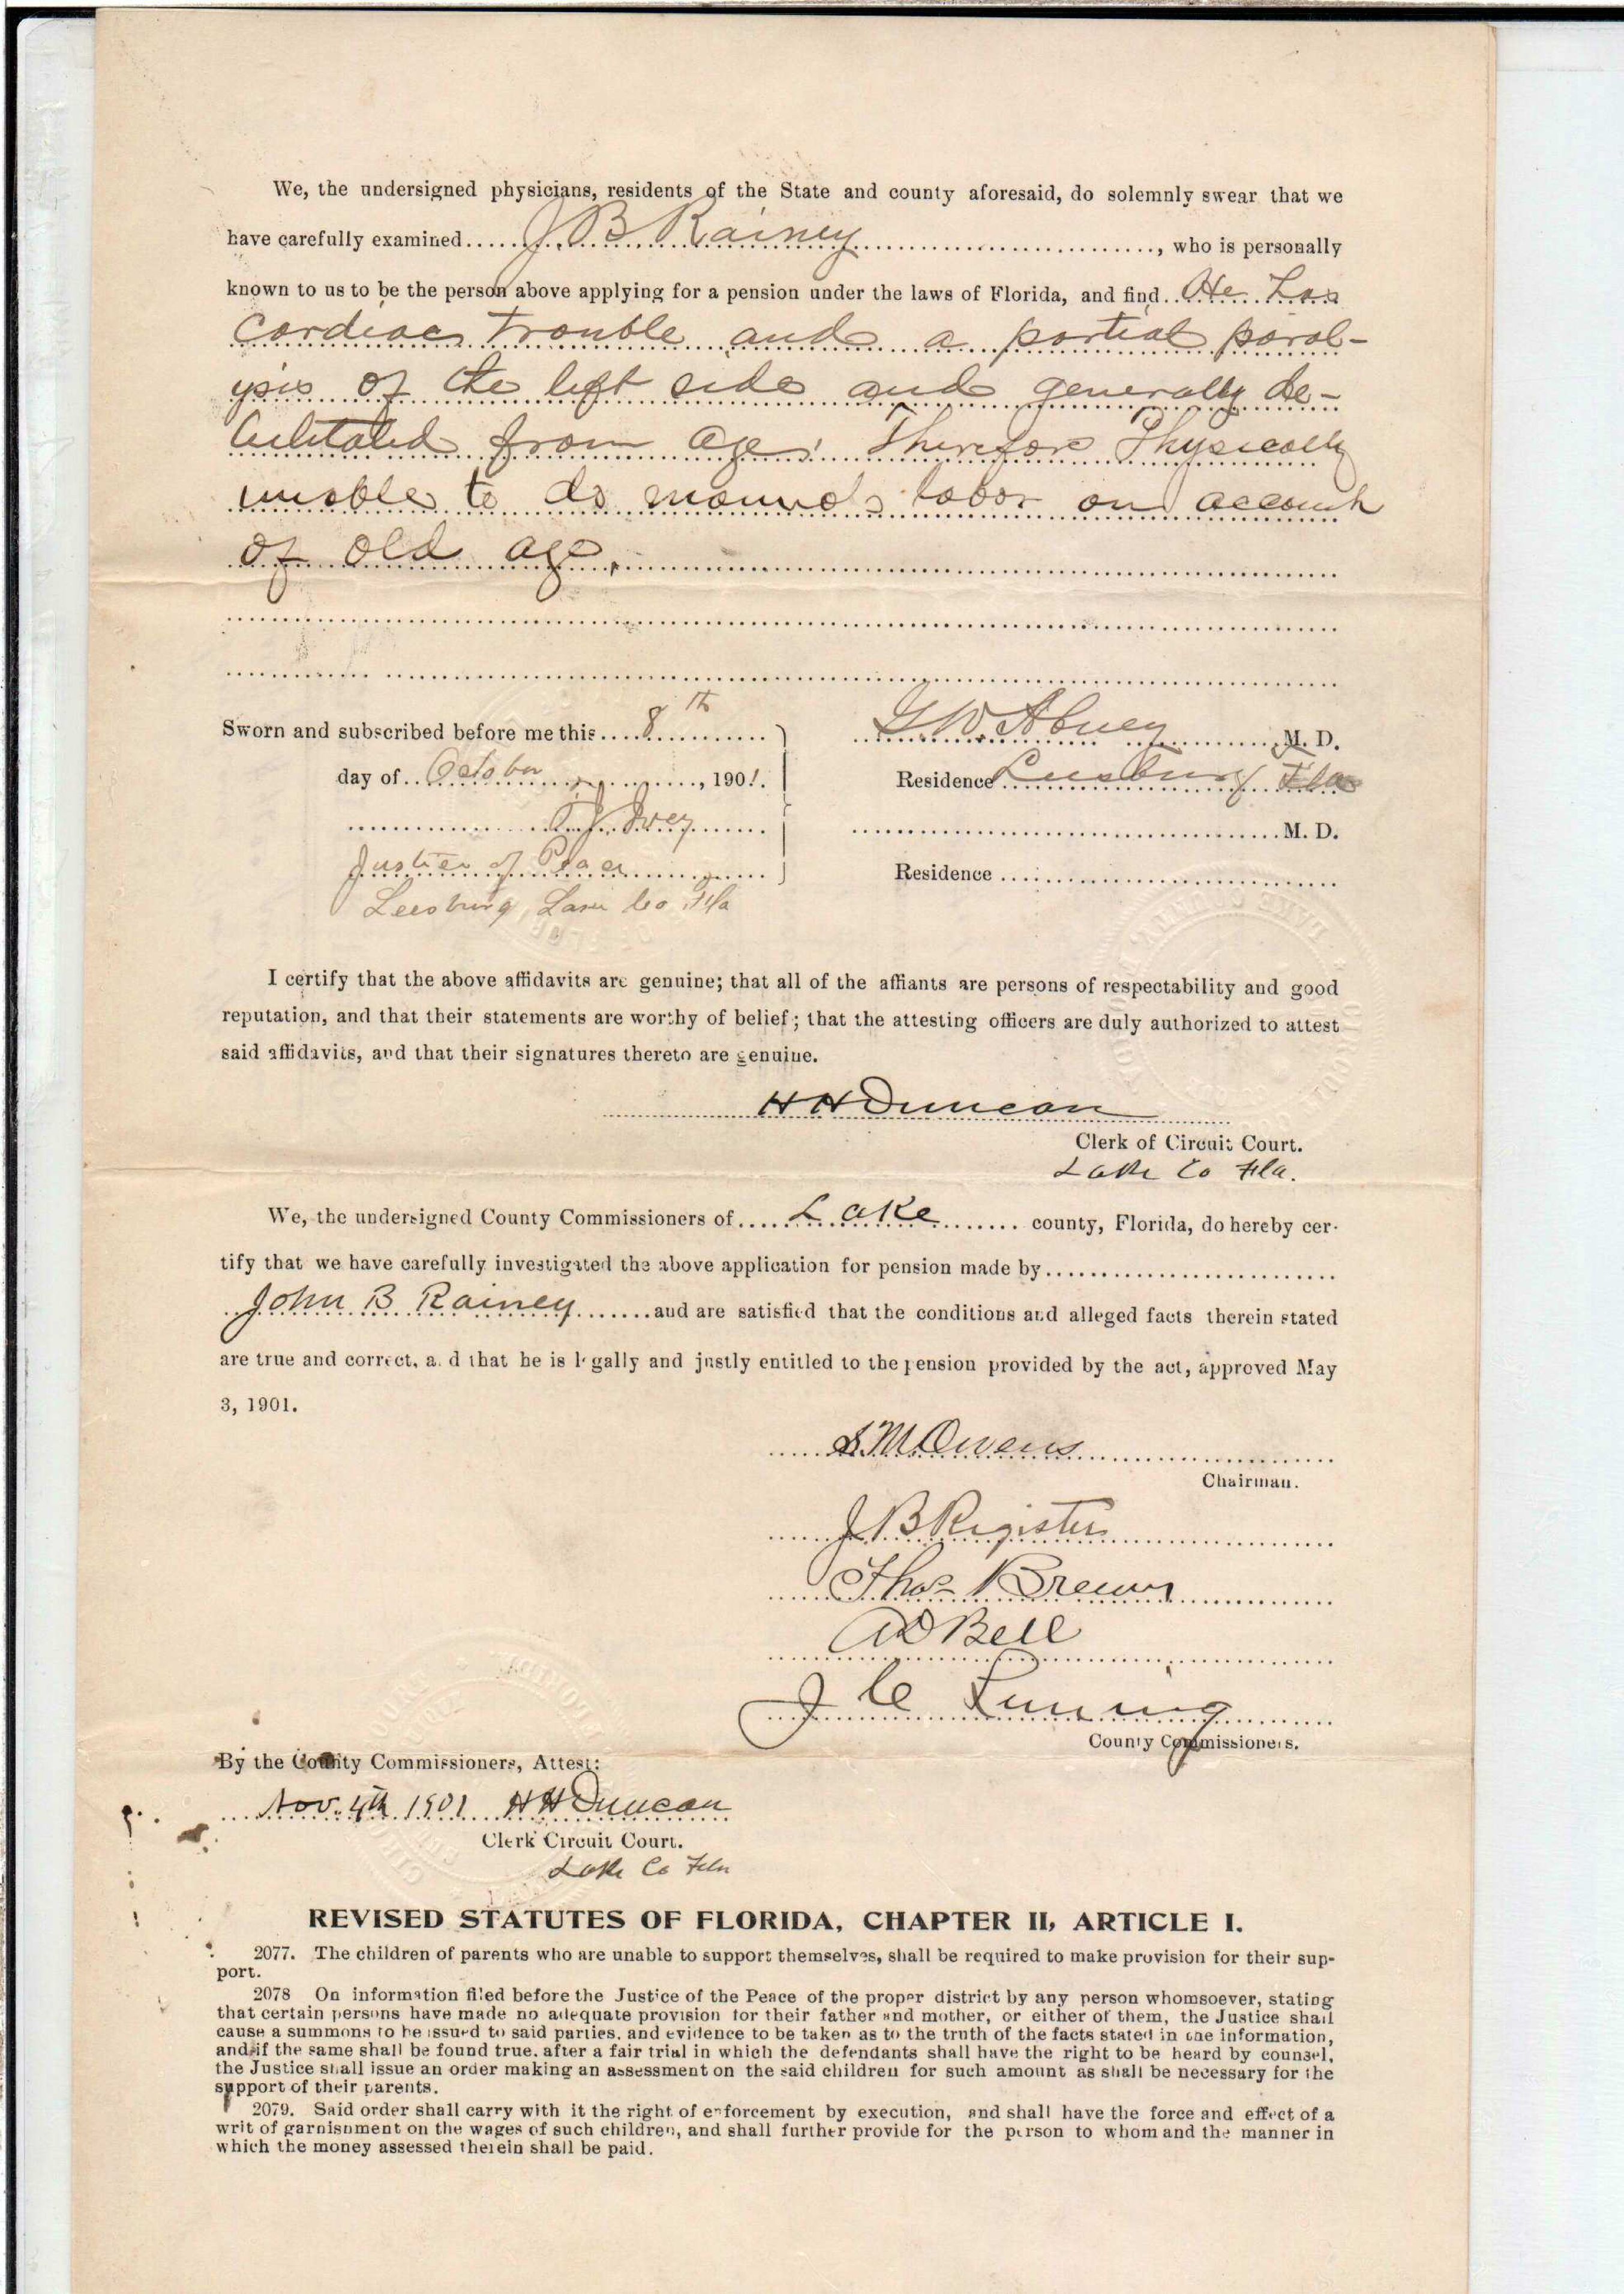 We, the undersigned physicians, residents of the State and county aforesaid, do solemnly swear that we
have carefully examined J B Rainey, who is personally
known to us to be the person above applying for a pension under the laws of Florida, and find He has
Cardiac trouble and a partial paral-
ysis of the left side and generally de-
bilitated from age. Therefore Physically
unable to do manual labor on account
of old age.
Sworn and subscribed before me this 8th
day of October, 1901.
Ivey
Justice of Peace
Leesburg, Lake Co Fla
G W Abney M. D.
Residence Leesburg Fla
M. D.
Residence
I certify that the above affidavits are genuine; that all of the affiants are persons of respectability and good
reputation, and that their statements are worthy of belief; that the attesting officers are duly authorized to attest
said affidavits, and that their signatures thereto are genuine.
H H Duncan
Clerk of Circuit Court.
Lake Co Fla.
We, the undersigned County Commissioners of Lake county, Florida, do hereby cer-
tify that we have carefully investigated the above application for pension made by
John B Rainey and are satisfied that the conditions and alleged facts therein stated
are true and correct, and that he is legally and justly entitled to the pension provided by the act, approved May
3, 1901.
S. M. Owens
Chairman.
J B Register
Thos Brown
A D Bell
J C Luning
County Commissioners.
By the County Commissioners, Attest:
Nov. 4th 1901 H H Duncan
Clerk Circuit Court.
Lake Co Fla
REVISED STATUTES OF FLORIDA, CHAPTER II, ARTICLE I.
2077. The children of parents who are unable to support themselves, shall be required to make provision for their sup-
port.
2078 On information filed before the Justice of the Peace of the proper district by any person whomsoever, stating
that certain persons have made no adequate provision for their father and mother, or either of them, the Justice shall
cause a summons to be issued to said parties, and evidence to be taken as to the truth of the facts stated in the information,
and if the same shall be found true, after a fair trial in which the defendants shall have the right to be heard by counsel,
the Justice shall issue an order making an assessment on the said children for such amount as shall be necessary for the
support of their parents.
2079. Said order shall carry with it the right of enforcement by execution, and shall have the force and effect of a
writ of garnishment on the wages of such children, and shall further provide for the person to whom and the manner in
which the money assessed therein shall be paid.